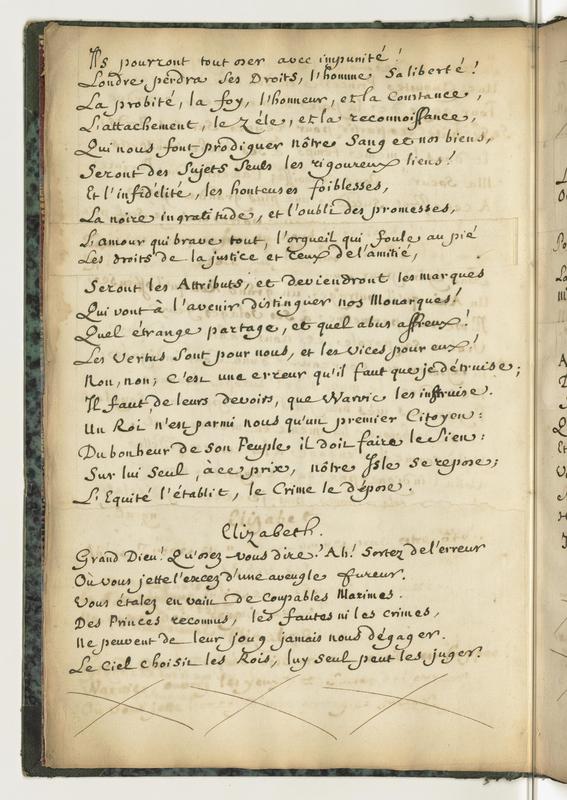 Ils pourront tout oser avec impunité !
Londre perdra ses Droits, l'homme sa liberté !
La probité, la foy, l'honneur, et la Constance,
L'attachement, le Zéle, et la reconnoissance,
Qui nous font prodiguer nôtre Sang et nos biens,
Seront des Sujets Seuls les rigoureux liens !
Et l'infidélité, les honteuses foiblesses,
La noire ingratitude, et l'oubli des promesses,
L'amour qui brave tout, l'orgueil qui foule au pié
Les droits de la justice et Ceux de l'amitié,
Seront les Attributs, et deviendront les marques
Qui vont à l'avenir distinguer nos Monarques !
Quel étrange partage, et quel abus affreux !
Les Vertus Sont pour nous, et les Vices pour eux !
Non, non; C'est une erreur qu'il faut que je détruise;
Il faut, de leurs devoirs, que Warvic les instruise.
Un Roi n'est parmi nous qu'un premier Citoyen :
Du bonheur de son Peuple il doit faire le Sien :
Sur lui Seul, à ce prix, nôtre Isle se repose;
L'Equité l'établit, le Crime le dépose.
Elizabeth.
Grand Dieu ! Qu'osez-vous dire ? Ah ! Sortez de l'erreur
Où vous jette l'excez d'une aveugle fureur.
Vous étalez en vain de Coupables Maximes.
Des Princes reconnus, les fautes ni les crimes,
Ne peuvent de leur joug jamais nous dégager.
Le Ciel choisit les Rois, luy seul peut les juger.